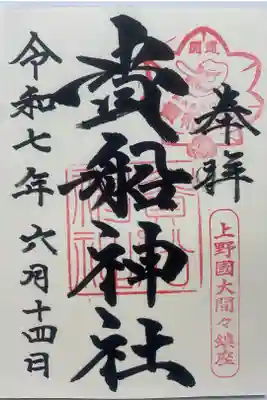 奉拝
上野國大間々鎮座
貴船神社
令和七年六月十四日